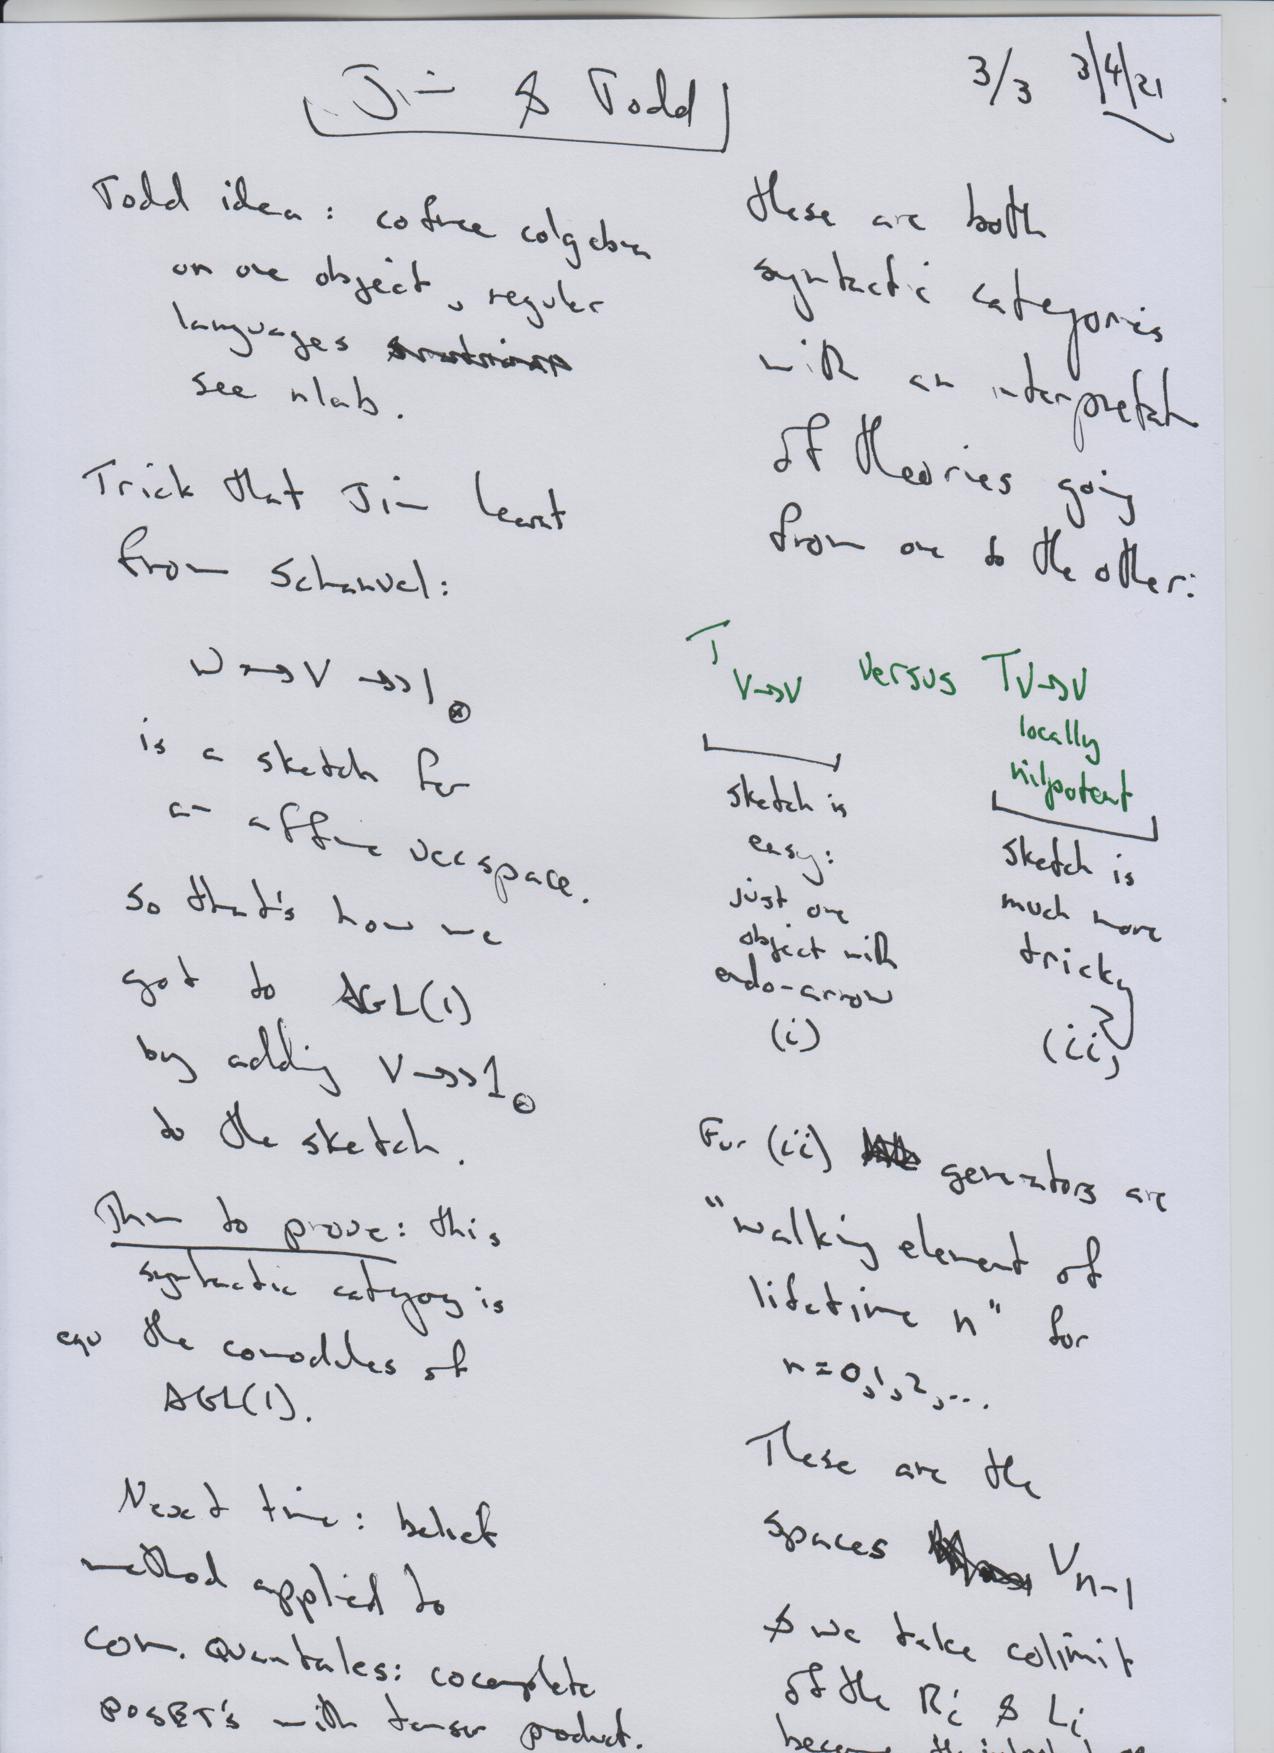 Jim & Todd
3/3 3/4/21
Todd idea: cofree colgebra
on one object, regular
languages
see nlab.
Trick that Jim learnt
from Schanuel:
W ↣ V ↠ 1⊗
is a sketch for
an affine vec space.
So that's how we
got to AGL(1)
by adding V ↠ 1⊗
to the sketch.
Thm to prove: this
syntactic category is
equ the comodules of
AGL(1).
Next time: belief
method applied to
com. Quantales: cocomplete
POSET's with tensor product.
these are both
syntactic categories
with an interpretatn
of theories going
from one to the other:
T V→V versus T V→V
locally
nilpotent
sketch is
easy:
just one
object with
endo-arrow
(i)
sketch is
much more
tricky
(ii)
For (ii) generators are
"walking element of
lifetime n" for
n=0,1,2,...
These are the
spaces Vn-1
& we take colimit
of the Ri & Li